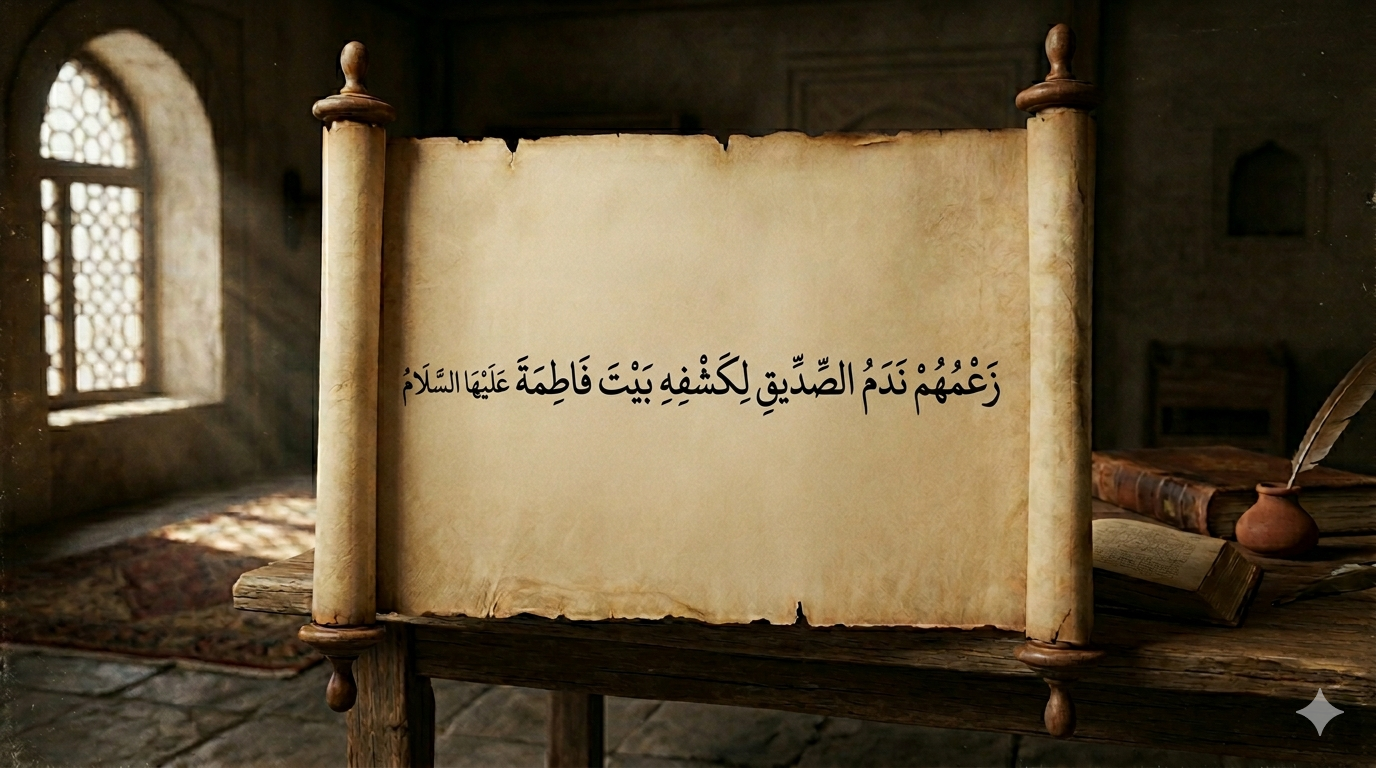 زَعْمُهُمْ نَدَمُ الصِّدِّيقِ لِكَشْفِهِ بَيْتَ فَاطِمَةَ عَلَيْهَا السَّلَامُ